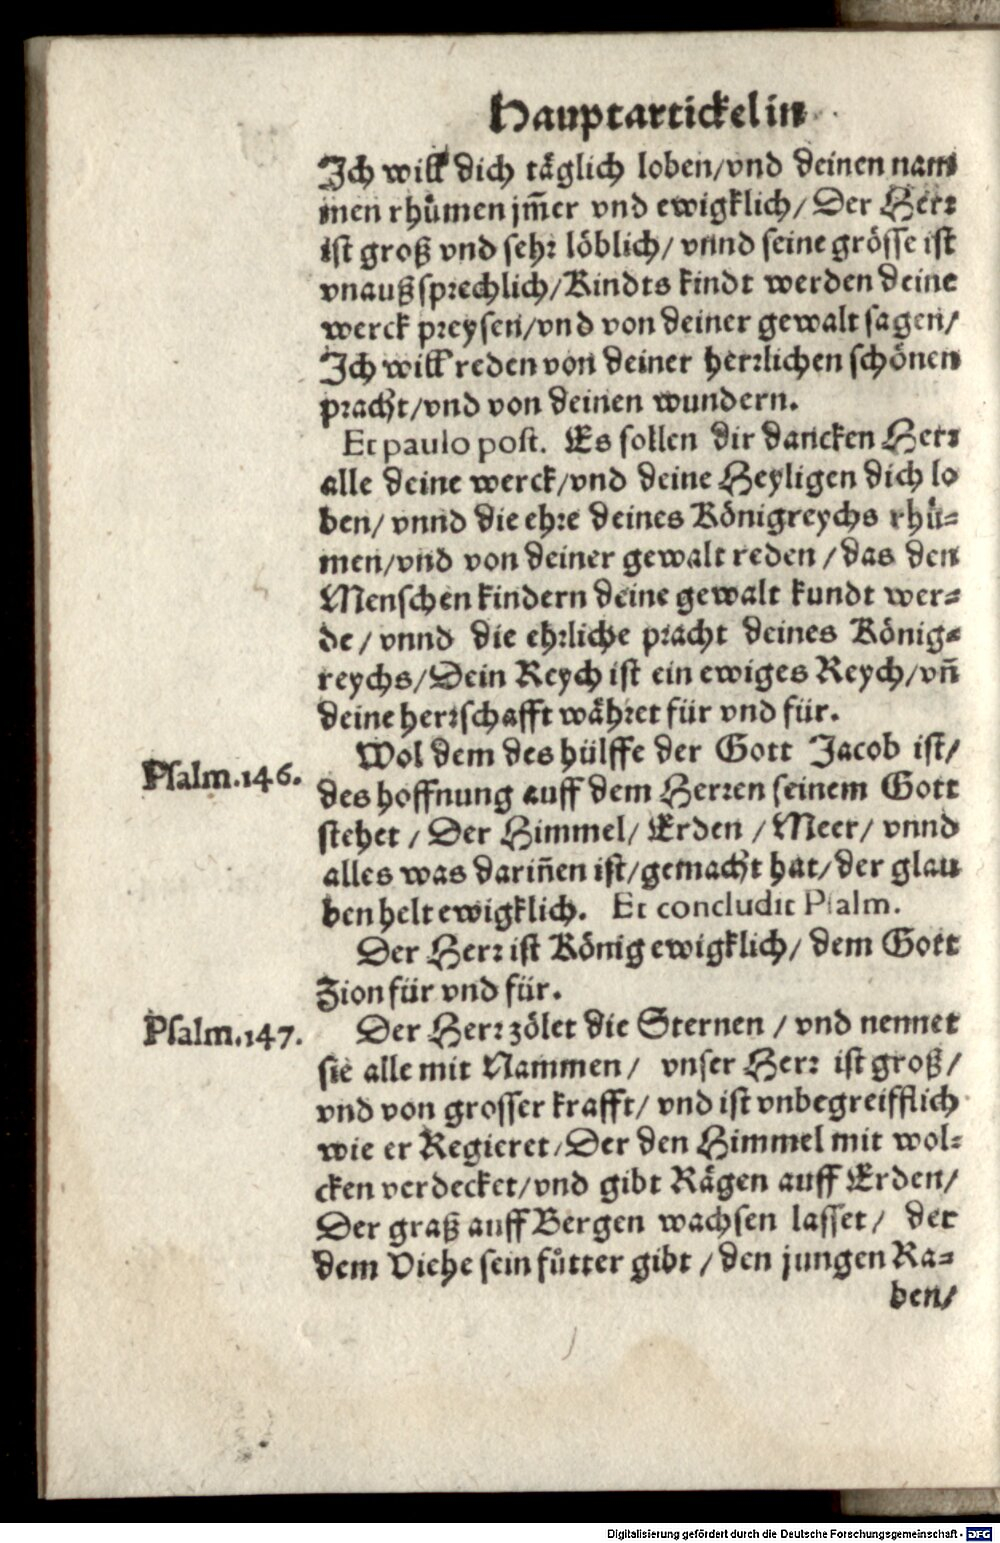 Hauptartickel in
Ich will dich täglich loben/vnd deinen nam
men rhuͤmen jm̃er vnd ewigklich/ Der Herr
ist groß vnd sehr löblich/ vnnd seine grösse ist
vnaußsprechlich/Kindts kindt werden deine
werck preysen/vnd von deiner gewalt sagen/
Ich will reden von deiner herrlichen schönen
pracht/vnd von deinen wundern.
Et paulo post. Es sollen dir dancken Herr
alle deine werck/vnd deine Heyligen dich lo
ben/ vnnd die ehre deines Königreychs rhuͤ-
men/vnd von deiner gewalt reden / das den
Menschen kindern deine gewalt kundt wer-
de / vnnd die ehrliche pracht deines König-
reychs/Dein Reych ist ein ewiges Reych/vñ
deine herrschafft währet für vnd für.
Psalm.146.
Wol dem des hülffe der Gott Jacob ist/
des hoffnung auff dem Herren seinem Gott
stehet / Der Himmel/ Erden / Meer/ vnnd
alles was dariñen ist/gemacht hat/der glau
ben helt ewigklich. Et concludit Psalm.
Der Herr ist König ewigklich/ dem Gott
Zion für vnd für.
Psalm.147.
Der Herr zölet die Sternen / vnd nennet
sie alle mit Nammen/ vnser Herr ist groß/
vnd von grosser krafft/ vnd ist vnbegreifflich
wie er Regieret/Der den Himmel mit wol-
cken verdecket/vnd gibt Rägen auff Erden/
Der graß auff Bergen wachsen lasset/ der
dem Viehe sein fuͤtter gibt / den jungen Ra-
ben/
Digitalisierung gefördert durch die Deutsche Forschungsgemeinschaft - DFG